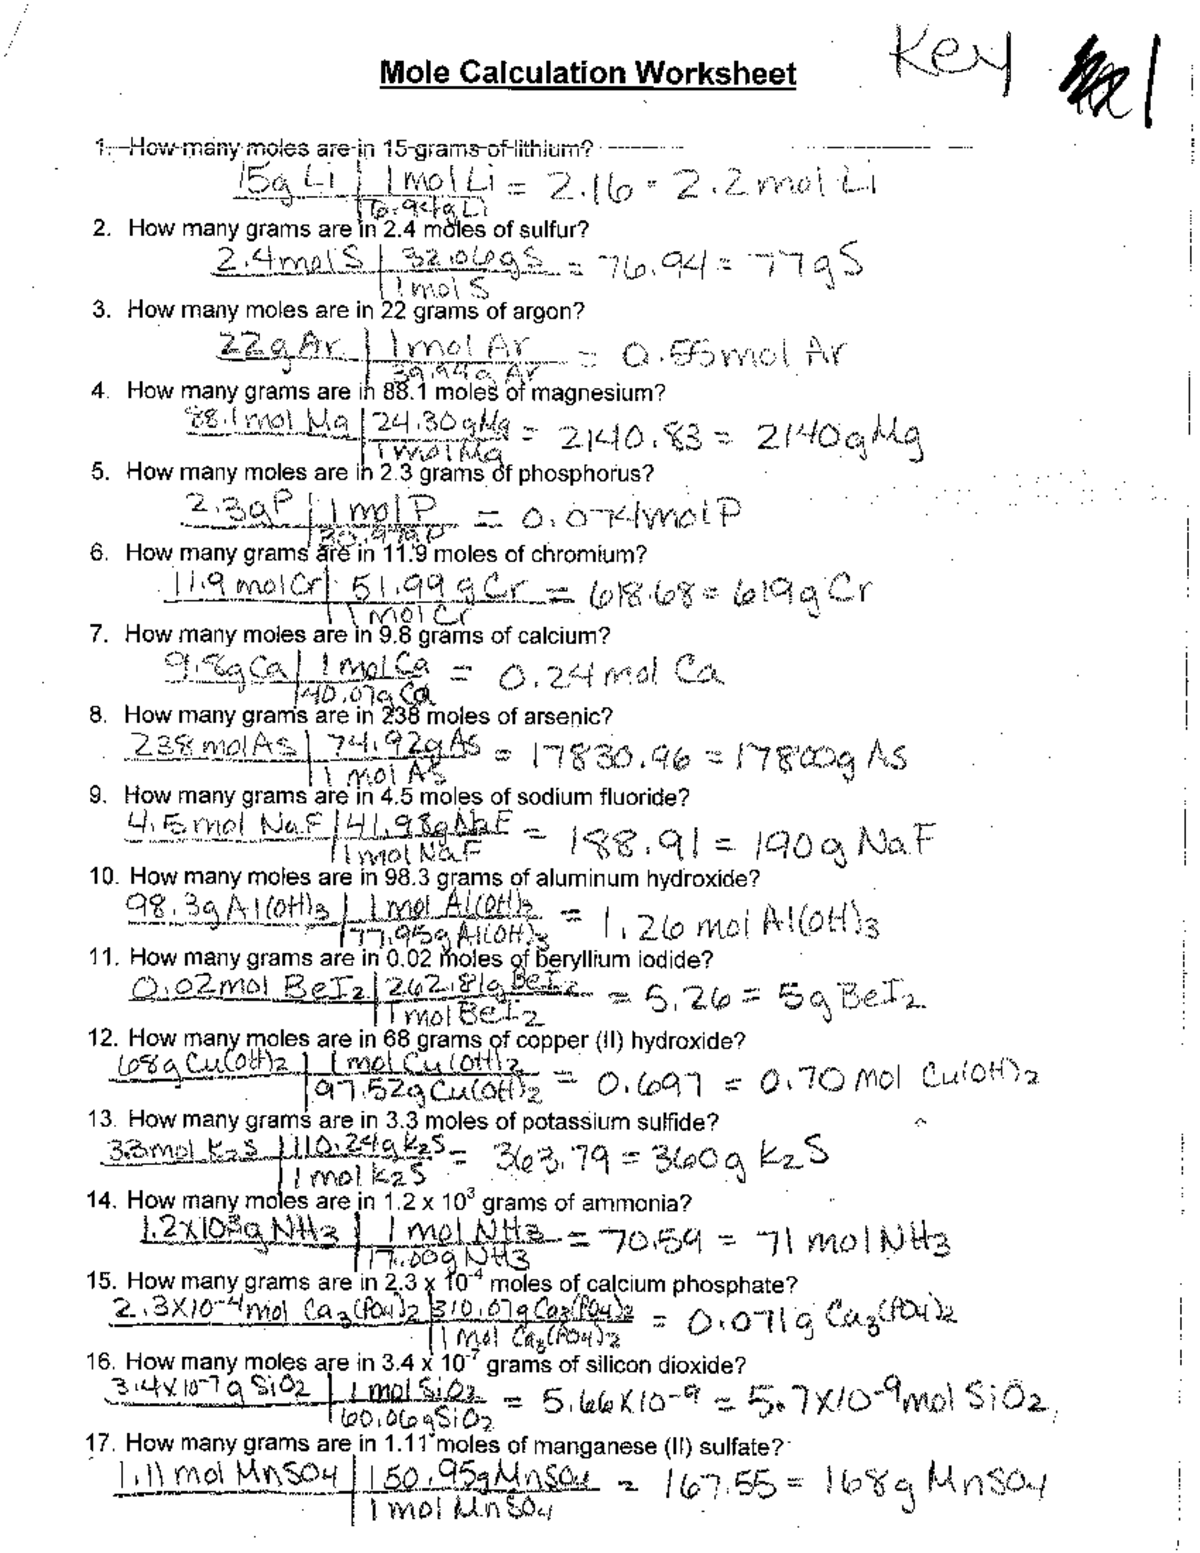 Key 1
Mole Calculation Worksheet
1. How many moles are in 15 grams of lithium?
15g Li | 1 mol Li = 2.16 = 2.2 mol Li
6.94g Li
2. How many grams are in 2.4 moles of sulfur?
2.4 mol S | 32.06g S = 76.94 = 77g S
1 mol S
3. How many moles are in 22 grams of argon?
22g Ar | 1 mol Ar = 0.55 mol Ar
39.94g Ar
4. How many grams are in 88.1 moles of magnesium?
88.1 mol Mg | 24.30g Mg = 2140.83 = 2140g Mg
1 mol Mg
5. How many moles are in 2.3 grams of phosphorus?
2.3g P | 1 mol P = 0.074 mol P
30.97g P
6. How many grams are in 11.9 moles of chromium?
11.9 mol Cr | 51.99 g Cr = 618.68 = 619g Cr
1 mol Cr
7. How many moles are in 9.8 grams of calcium?
9.8g Ca | 1 mol Ca = 0.24 mol Ca
40.07g Ca
8. How many grams are in 238 moles of arsenic?
238 mol As | 74.92g As = 17830.96 = 17800g As
1 mol As
9. How many grams are in 4.5 moles of sodium fluoride?
4.5 mol NaF | 41.98g NaF = 188.91 = 190g NaF
1 mol NaF
10. How many moles are in 98.3 grams of aluminum hydroxide?
98.3g Al(OH)3 | 1 mol Al(OH)3 = 1.26 mol Al(OH)3
77.95g Al(OH)3
11. How many grams are in 0.02 moles of beryllium iodide?
0.02 mol BeI2 | 262.81g BeI2 = 5.26 = 5g BeI2
1 mol BeI2
12. How many moles are in 68 grams of copper (II) hydroxide?
68g Cu(OH)2 | 1 mol Cu(OH)2 = 0.697 = 0.70 mol Cu(OH)2
97.52g Cu(OH)2
13. How many grams are in 3.3 moles of potassium sulfide?
3.3 mol K2S | 110.24g K2S = 363.79 = 360g K2S
1 mol K2S
14. How many moles are in 1.2 x 10³ grams of ammonia?
1.2x10³g NH3 | 1 mol NH3 = 70.59 = 71 mol NH3
17.00g NH3
15. How many grams are in 2.3 x 10⁻⁴ moles of calcium phosphate?
2.3x10⁻⁴ mol Ca3(PO4)2 | 310.07g Ca3(PO4)2 = 0.071g Ca3(PO4)2
1 mol Ca3(PO4)2
16. How many moles are in 3.4 x 10⁻⁷ grams of silicon dioxide?
3.4x10⁻⁷g SiO2 | 1 mol SiO2 = 5.66x10⁻⁹ = 5.7x10⁻⁹ mol SiO2
60.06g SiO2
17. How many grams are in 1.11 moles of manganese (II) sulfate?
1.11 mol MnSO4 | 150.95g MnSO4 = 167.55 = 168g MnSO4
1 mol MnSO4